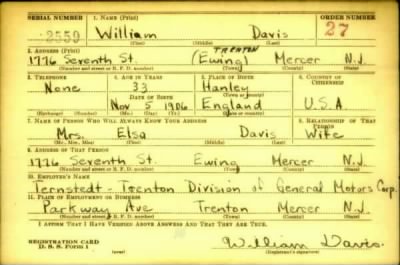 SERIAL NUMBER 1. NAME (Print) ORDER NUMBER
2559 William Davis 27
(First) (Middle) (Last)
2. ADDRESS (Print) TRENTON
1776 Seventh St. (Ewing) Mercer N.J.
(Number and street or R. F. D. number) (Town) (County) (State)
3. TELEPHONE 4. AGE IN YEARS 5. PLACE OF BIRTH 6. COUNTRY OF
None 33 Hanley CITIZENSHIP
DATE OF BIRTH (Town)
Nov 5 1906 England U.S.A.
(Exchange) (Number) (Mo.) (Day) (Yr.) (State or country)
7. NAME OF PERSON WHO WILL ALWAYS KNOW YOUR ADDRESS 8. RELATIONSHIP OF THAT PERSON
Mrs. Elsa Davis Wife
(Mr., Mrs., Miss) (First) (Middle) (Last)
9. ADDRESS OF THAT PERSON
1776 Seventh St. Ewing Mercer N.J.
(Number and street or R. F. D. number) (Town) (County) (State)
10. EMPLOYER'S NAME
Ternstedt - Trenton Division of General Motors Corp.
11. PLACE OF EMPLOYMENT OR BUSINESS
Parkway Ave Trenton Mercer N.J.
(Number and street or R. F. D. number) (Town) (County) (State)
I AFFIRM THAT I HAVE VERIFIED ABOVE ANSWERS AND THAT THEY ARE TRUE.
REGISTRATION CARD William Davis.
D. S. S. FORM 1 (over) (Registrant's signature)